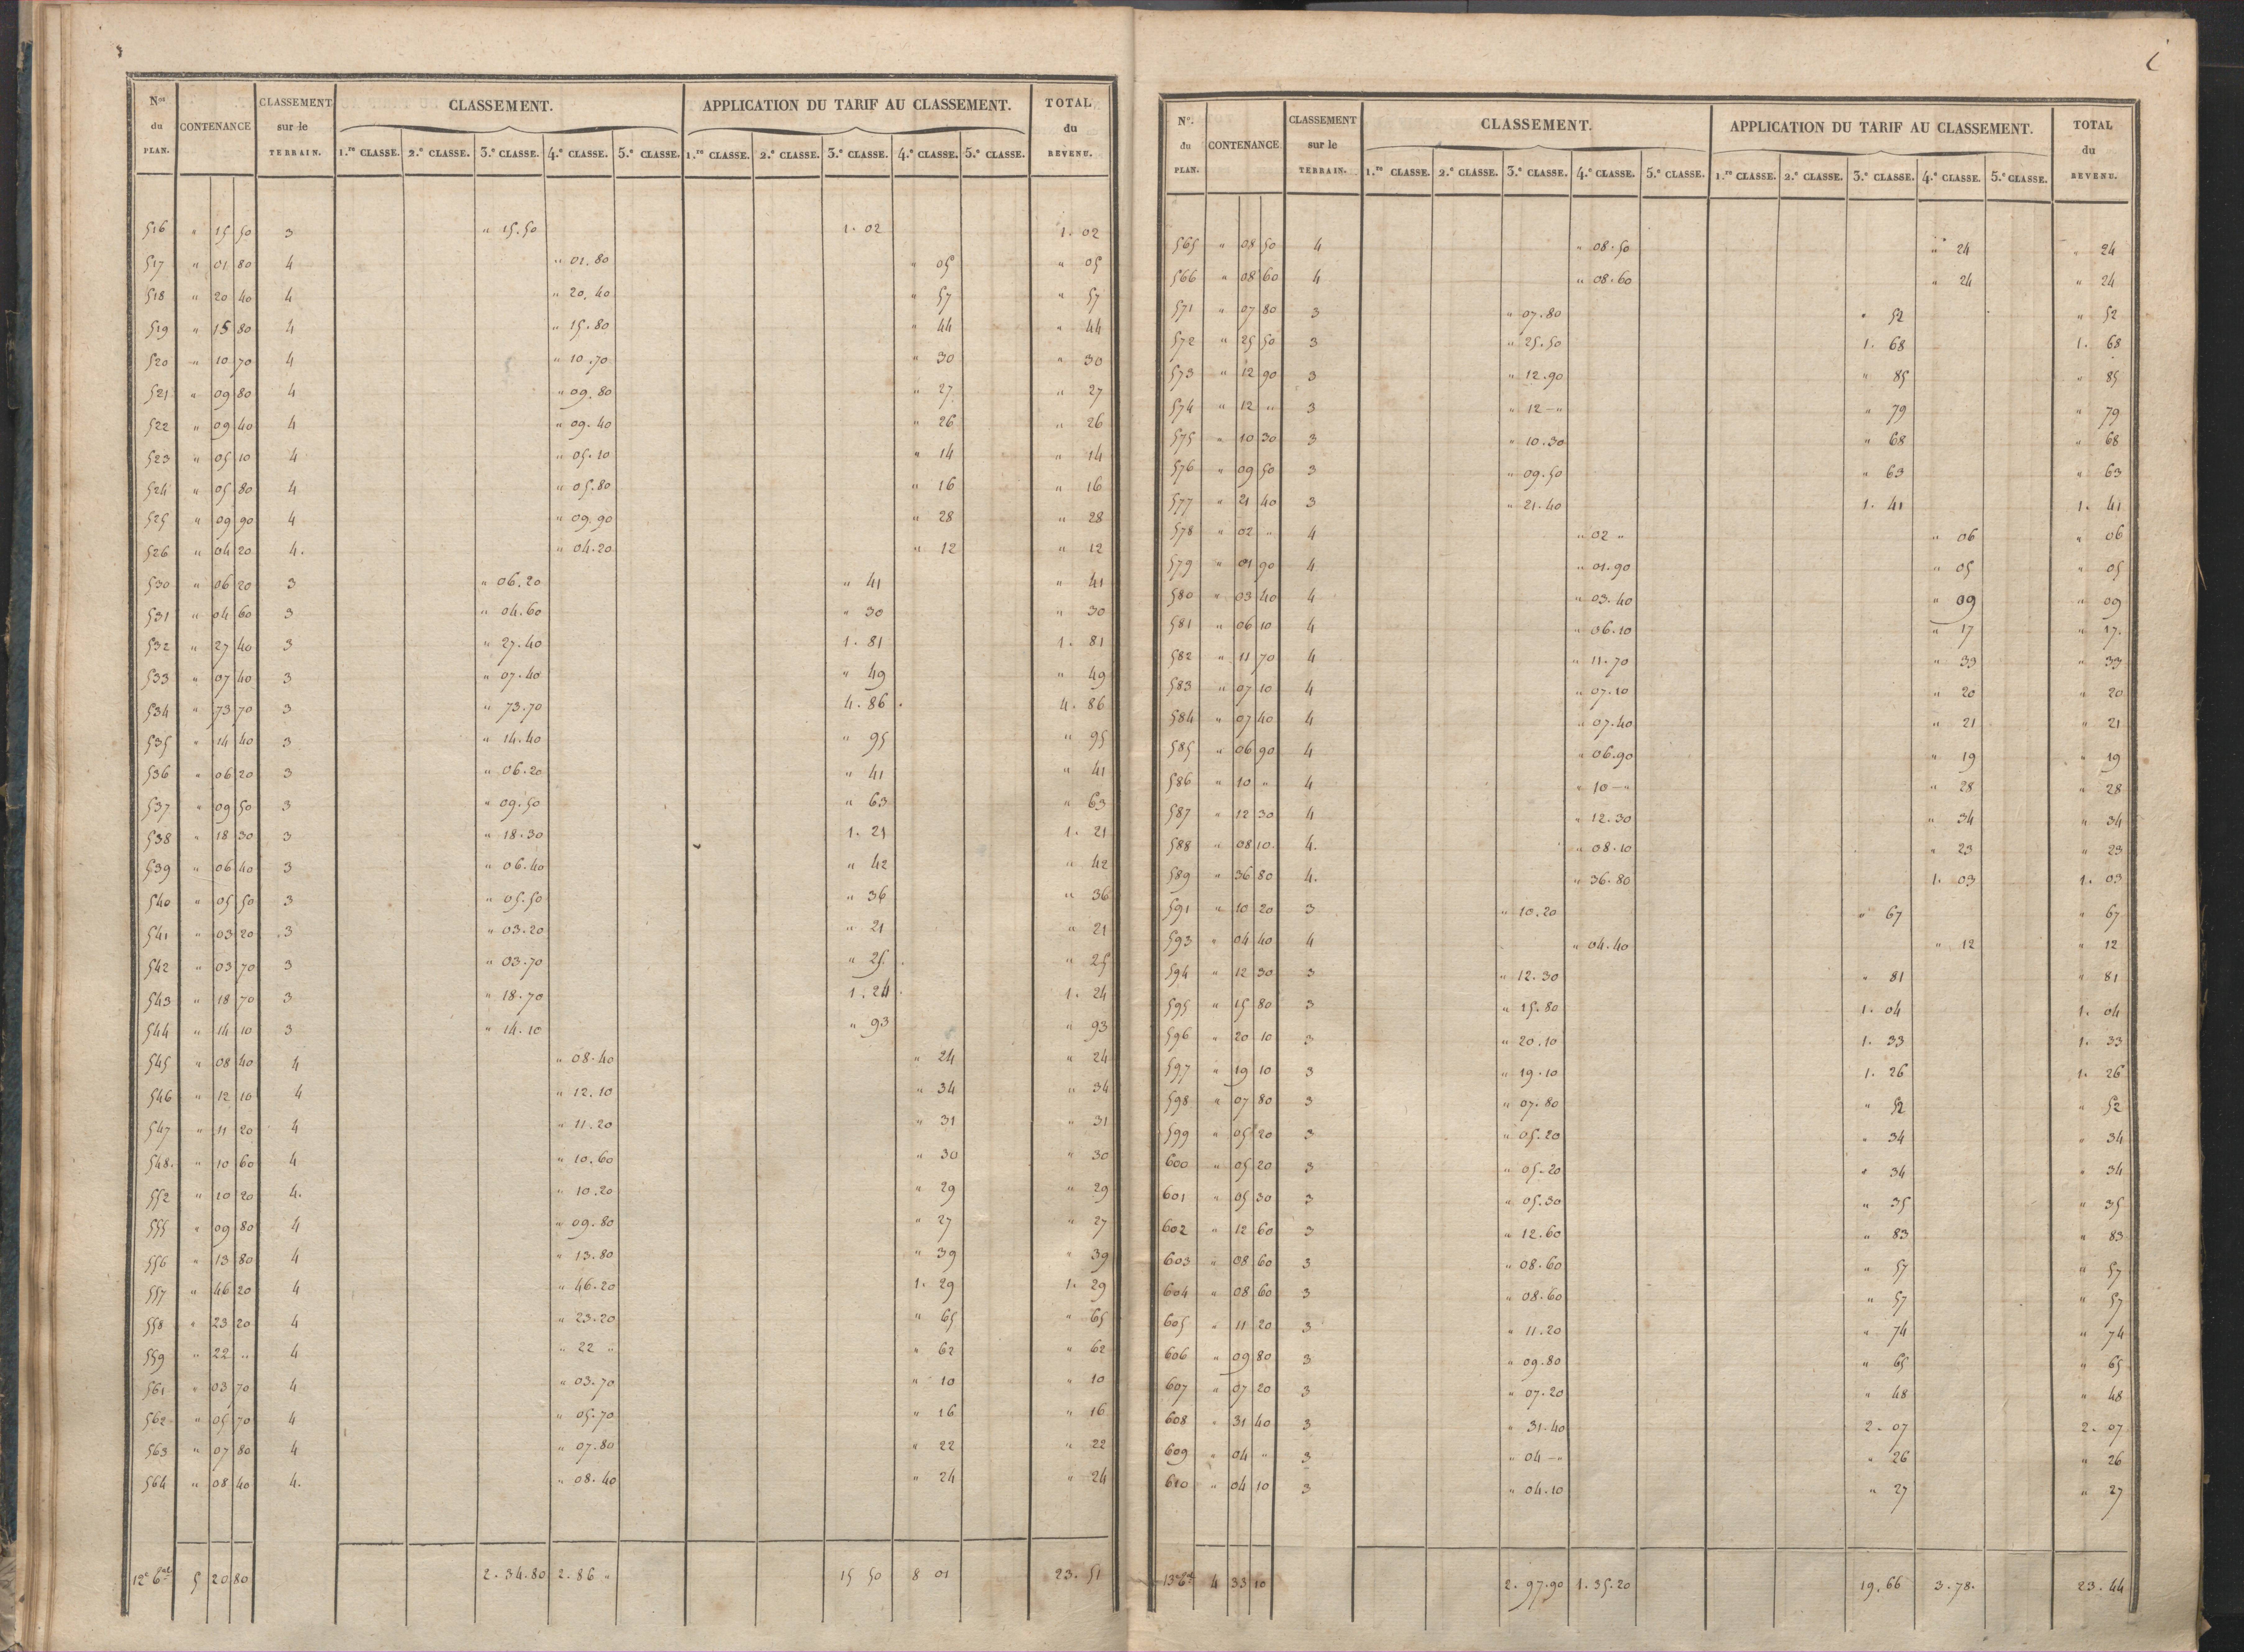 N.os du PLAN. CONTENANCE CLASSEMENT sur le TERRAIN. CLASSEMENT. APPLICATION DU TARIF AU CLASSEMENT. TOTAL du REVENU.
1.re CLASSE. 2.e CLASSE. 3.e CLASSE. 4.e CLASSE. 5.e CLASSE. 1.re CLASSE. 2.e CLASSE. 3.e CLASSE. 4.e CLASSE. 5.e CLASSE.
516 " 15 50 3 " 15.50 1. 02 1. 02
517 " 01 80 4 " 01.80 " 05 " 05
518 " 20 40 4 " 20.40 " 57 " 57
519 " 15 80 4 " 15.80 " 44 " 44
520 " 10 70 4 " 10.70 " 30 " 30
521 " 09 80 4 " 09.80 " 27 " 27
522 " 09 40 4 " 09.40 " 26 " 26
523 " 05 10 4 " 05.10 " 14 " 14
524 " 05 80 4 " 05.80 " 16 " 16
525 " 09 90 4 " 09.90 " 28 " 28
526 " 04 20 4. " 04.20 " 12 " 12
530 " 06 20 3 " 06.20 " 41 " 41
531 " 04 60 3 " 04.60 " 30 " 30
532 " 27 40 3 " 27.40 1. 81 1. 81
533 " 07 40 3 " 07.40 " 49 " 49
534 " 73 70 3 " 73.70 4. 86 4. 86
535 " 14 40 3 " 14.40 " 95 " 95
536 " 06 20 3 " 06.20 " 41 " 41
537 " 09 50 3 " 09.50 " 63 " 63
538 " 18 30 3 " 18.30 1. 21 1. 21
539 " 06 40 3 " 06.40 " 42 " 42
540 " 05 50 3 " 05.50 " 36 " 36
541 " 03 20 3 " 03.20 " 21 " 21
542 " 03 70 3 " 03.70 " 25 " 25
543 " 18 70 3 " 18.70 1. 24 1. 24
544 " 14 10 3 " 14.10 " 93 " 93
545 " 08 40 4 " 08.40 " 24 " 24
546 " 12 10 4 " 12.10 " 34 " 34
547 " 11 20 4 " 11.20 " 31 " 31
548. " 10 60 4 " 10.60 " 30 " 30
552 " 10 20 4. " 10.20 " 29 " 29
555 " 09 80 4 " 09.80 " 27 " 27
556 " 13 80 4 " 13.80 " 39 " 39
557 " 46 20 4 " 46.20 1. 29 1. 29
558 " 23 20 4 " 23.20 " 65 " 65
559 " 22 " 4 " 22 " " 62 " 62
561 " 03 70 4 " 03.70 " 10 " 10
562 " 05 70 4 " 05.70 " 16 " 16
563 " 07 80 4 " 07.80 " 22 " 22
564 " 08 40 4. " 08.40 " 24 " 24
12e 5 20 80 2.34.80 2.86 " 15 50 8 01 23.51
N.o du PLAN. CONTENANCE CLASSEMENT sur le TERRAIN. CLASSEMENT. APPLICATION DU TARIF AU CLASSEMENT. TOTAL du REVENU.
1.re CLASSE. 2.e CLASSE. 3.e CLASSE. 4.e CLASSE. 5.e CLASSE. 1.re CLASSE. 2.e CLASSE. 3.e CLASSE. 4.e CLASSE. 5.e CLASSE.
565 " 08 50 4 " 08.50 " 24 " 24
566 " 08 60 4 " 08.60 " 24 " 24
571 " 07 80 3 " 07.80 " 52 " 52
572 " 25 50 3 " 25.50 1. 68 1. 68
573 " 12 90 3 " 12.90 " 85 " 85
574 " 12 " 3 " 12 - " " 79 " 79
575 " 10 30 3 " 10.30 " 68 " 68
576 " 09 50 3 " 09.50 " 63 " 63
577 " 21 40 3 " 21.40 1. 41 1. 41
578 " 02 " 4 " 02 " " 06 " 06
579 " 01 90 4 " 01.90 " 05 " 05
580 " 03 40 4 " 03.40 " 09 " 09
581 " 06 10 4 " 06.10 " 17 " 17.
582 " 11 70 4 " 11.70 " 33 " 33
583 " 07 10 4 " 07.10 " 20 " 20
584 " 07 40 4 " 07.40 " 21 " 21
585 " 06 90 4 " 06.90 " 19 " 19
586 " 10 " 4 " 10 - " " 28 " 28
587 " 12 30 4 " 12.30 " 34 " 34
588 " 08 10 4. " 08.10 " 23 " 23
589 " 36 80 4. " 36.80 1. 03 1. 03
591 " 10 20 3 " 10.20 " 67 " 67
593 " 04 40 4 " 04.40 " 12 " 12
594 " 12 30 3 " 12.30 " 81 " 81
595 " 15 80 3 " 15.80 1. 04 1. 04
596 " 20 10 3 " 20.10 1. 33 1. 33
597 " 19 10 3 " 19.10 1. 26 1. 26
598 " 07 80 3 " 07.80 " 52 " 52
599 " 05 20 3 " 05.20 " 34 " 34
600 " 05 20 3 " 05.20 " 34 " 34
601 " 05 30 3 " 05.30 " 35 " 35
602 " 12 60 3 " 12.60 " 83 " 83
603 " 08 60 3 " 08.60 " 57 " 57
604 " 08 60 3 " 08.60 " 57 " 57
605 " 11 20 3 " 11.20 " 74 " 74
606 " 09 80 3 " 09.80 " 65 " 65
607 " 07 20 3 " 07.20 " 48 " 48
608 " 31 40 3 " 31.40 2. 07 2. 07
609 " 04 " 3 " 04 - " " 26 " 26
610 " 04 10 3 " 04.10 " 27 " 27
4 33 10 2.97.90 1.35.20 19.66 3.78. 23.44